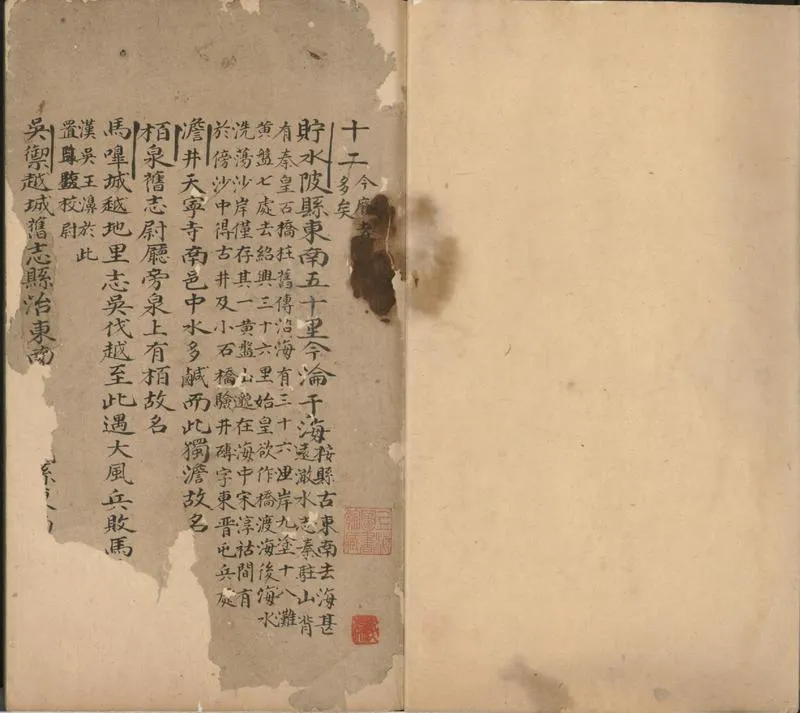 十二
今廢者
多矣
貯水陂縣東南五十里今淪于海
桉縣古東南去海甚
遠澉水志秦駐山背
有秦皇石橋柱舊傳沿海有三十六岸九塗十八灘
黄盤七處去紹興三十六里始皇欲作橋渡海後海水
洗蕩沙岸僅存其一黄盤山邈在海中宋淳祜間有
於傍沙中得古井及小石橋驗井磚字東晋屯兵處
澹井天寧寺南邑中水多鹹而此獨澹故名
栢泉舊志尉廳旁泉上有栢故名
馬嘷城越地里志吳伐越至此遇大風兵敗馬
漢吳王濞於此
置校尉
吳禦越城舊志縣治東南